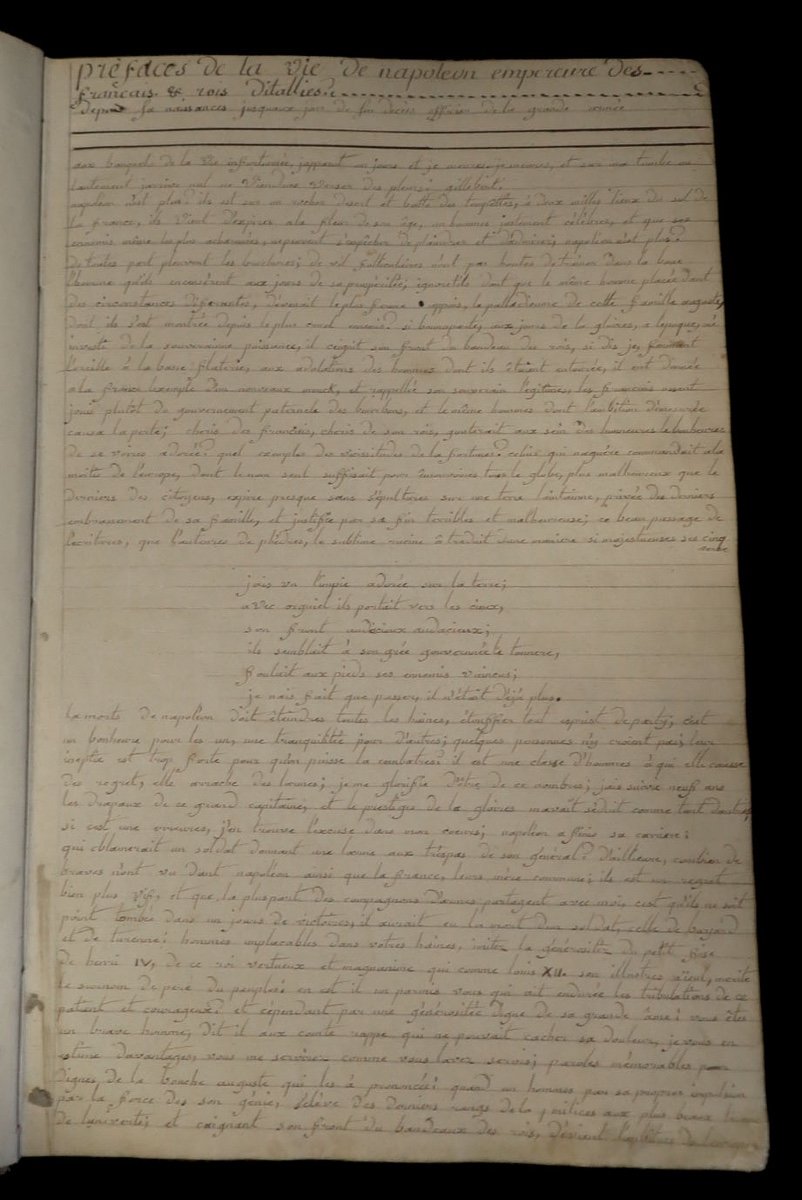 préfaces de la vie de napoleon empereure des
français & rois d'itallies
depuis sa naissances jusquaux jour de fin décès officier de la grande armée
aux banquets de la vie infortunée, japparut un jours et je meurs; je meures, et sur ma tombe ou
lautement jarrive nul ne viendras verser des pleurs: gillebert.
napoléon n'est plus: ils est sur un rocher désert et battu des tempêttes, à deux milles lieux du sol de
la france, ils vient d'expirer ala fleur de son âge, un hommes justement célèbres, et que ses
ennemis même les plus acharnées, ne peuvent s'empêcher de plaindres et d'admirer; napoléon n'est plus?
de toutes part pleuvent les brochures; de vil folliculaires n'ont pas hontes de trainer dans la boue
l'homme qu'ils encensèrent aux jours de sa prospérités, ignorets'ils dont que le même homme placée dant
des circonstances différentes, devenait le plus ferme appuis, le palladieume de cette famille auguste,
dont ils s'est montrée depuis le plus cruel ennemis? si buonaparte, aux jours de la gloires, a lepoque, où
investit de la souveraines puissance, il ceignit son front du bandeau des rois, si dis je, fermant
l'oreille à la basse flaterie, aux adulations des hommes dont ils étaient entourée, il eut donnée
ala france lexemple d'un nouveaux monck, et rappellée son souverain légitimes, les français eussent
joui plutôt du gouvernement paternele des bourbons, et le même hommes dont l'ambition démesurée
causa la perte; chéris des français, chéris de son rois, gouterait aux sein des honneures le bonheures
de se voires adorée? quel exemples des vicissitudes de la fortunes? celui qui naguère commandait ala
moitié de l'europe, dont le nom seul suffisait pour émouvoires tous le globe, plus malheureux que le
derniers des citoyens, expire presque sans sépultures sur une terre lointaine, privée des derniers
embrassement de sa famille, et justifie par sa fin terribles et malheureuse; ce beau passage de
l'ecritures, que l'auteures de phèdres, le sublime racine à traduit dune manière si majestueuses ses cinq
verse
jais vu l'impie adorée sur la terre;
avec orguiel ils portait vers les cieux,
son front audicieux audacieux;
ils semblait à son grée gouvernée le tonnere,
foulait aux pieds ses ennemis vaincus;
je nais fait que passer, il n'était déjà plus.
la morts de napoléon doit éteindres toutes les haines, étouffer tout esprist de party; c'est
un bonheure pour les un, une tranquilitée pour d'autres; quelques personnes n'y croient pas; leur
ineptie est trop forte pour qu'on puisse la combatres: il est une classe d'hommes à qui elle causse
des regret, elle arrache des larmes; je me glorifie d'être de ce nombres; jais suivie neuf ans
les drapaux de ce grand capitaine, et le prestige de la gloires mavait séduit comme tant d'autres,
si cest une erreures, j'en trouve l'excuse dans mon coeurs; napoléon a finie sa carrière:
qui oblamerait un soldat donnant une larme aux trépas de son général? d'ailleure, combien de
braves n'ont vu dant napoléon ainsi que la france, leurs mère commune; ils est un regret
bien plus vif, et que la pluspart des compagnons d'armes partagent avec moi, cest qu'ils ne soit
point tombée dans un jours de victoires; il aurait eu la mort d'un soldat, celle de bayard
et de turenne: hommes implacables dans votres haines, imitez la générositez du petit fise
de henri IV, de ce roi vertueux et magnanime qui comme louis XII. son illustres aïeul, mérite
le surnoim de père du peuples: en est il un parmis vous qui ait endurée les tribulations de ce
patient et courageux? et cépendant par une générositée digne de sa grande âme: vous êtes
un brave homme, dit il aux comte rappe qui ne pouvait cacher sa douleur, je vous en
estime davantages, vous me servirez comme vous lavez servis; paroles mémorables
dignes de la bouche auguste qui les à prononcée: quand un hommes par sa propres impulsion
par la force des son génie, s'élève des derniers rangs de la milices aux plus beaux trone
de lunivertés; et ceignant son front du bandeaux des rois, devient l'arbitres de leurope